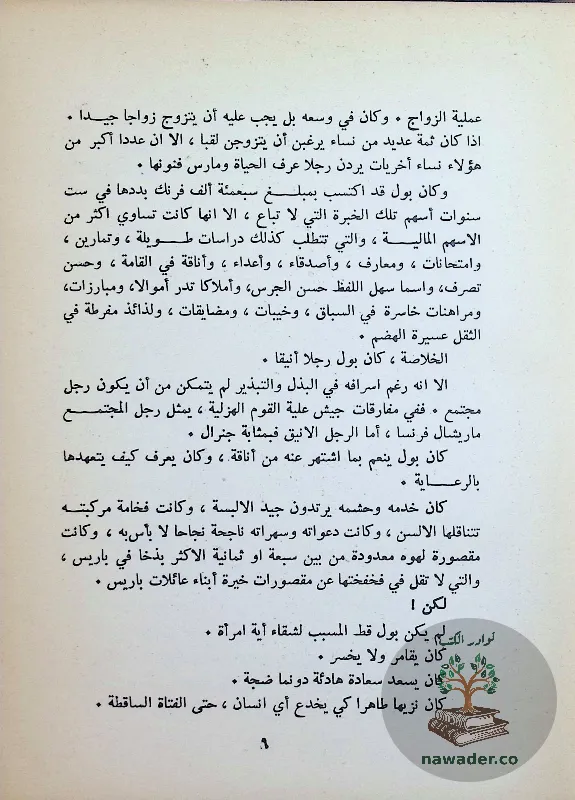 عملية الزواج . وكان في وسعه بل يجب عليه أن يتزوج زواجا جيــدا .
اذا كان ثمة عديد من نساء يرغبن أن يتزوجن لقبا ، الا ان عددا أكبر من
هؤلاء نساء أخريات يردن رجلا عرف الحياة ومارس فنونها .
وكان بول قد اكتسب بمبلــغ سبعمئة ألف فرنك بددها في ست
سنوات أسهم تلك الخبرة التي لا تباع ، الا انها كانت تساوي اكثر من
الاسهم الماليــة ، والتي تتطلب كذلك دراسات طــويلة ، وتمارين ،
وامتحانات ، ومعارف ، وأصدقاء ، وأعداء ، وأناقة في القامة ، وحسن
تصرف، واسما سهل اللفظ حسن الجرس، وأملاكا تدر أموالا، ومبارزات،
ومراهنات خاسرة في السباق ، وخيبات ، ومضايقات ، ولذائذ مفرطة في
الثقل عسيرة الهضم .
الخلاصة ، كان بول رجلا أنيقا .
الا انه رغم اسرافه في البذل والتبذير لم يتمكن من أن يكون رجل
مجتمع . ففي مفارقات جيش علية القوم الهزلية ، يمثل رجل المجتمــع
ماريشال فرنسا ، أما الرجل الانيق فبمثابة جنرال .
كان بول ينعم بما اشتهر عنه من أناقة ، وكان يعرف كيف يتعهدها
بالرعــاية .
كان خدمه وحشمه يرتدون جيد الالبسة ، وكانت فخامة مركبتــه
تتناقلها الالسن ، وكانت دعواته وسهراته ناجحة نجاحا لا بأس به ، وكانت
مقصورة لهوه معدودة من بين سبعة او ثمانية الاكثر بذخا في باريس ،
والتي لا تقل في فخفختها عن مقصورات خيرة أبناء عائلات باريس .
لكن !
لم يكن بول قط المسبب لشقاء أية امرأة .
كان يقامر ولا يخسر .
كان يسعد سعادة هادئة دونما ضجة .
كان نزيها طاهرا كي يخدع أي انسان ، حتى الفتاة الساقطة .
٩
نوادر الكتب
nawader.co